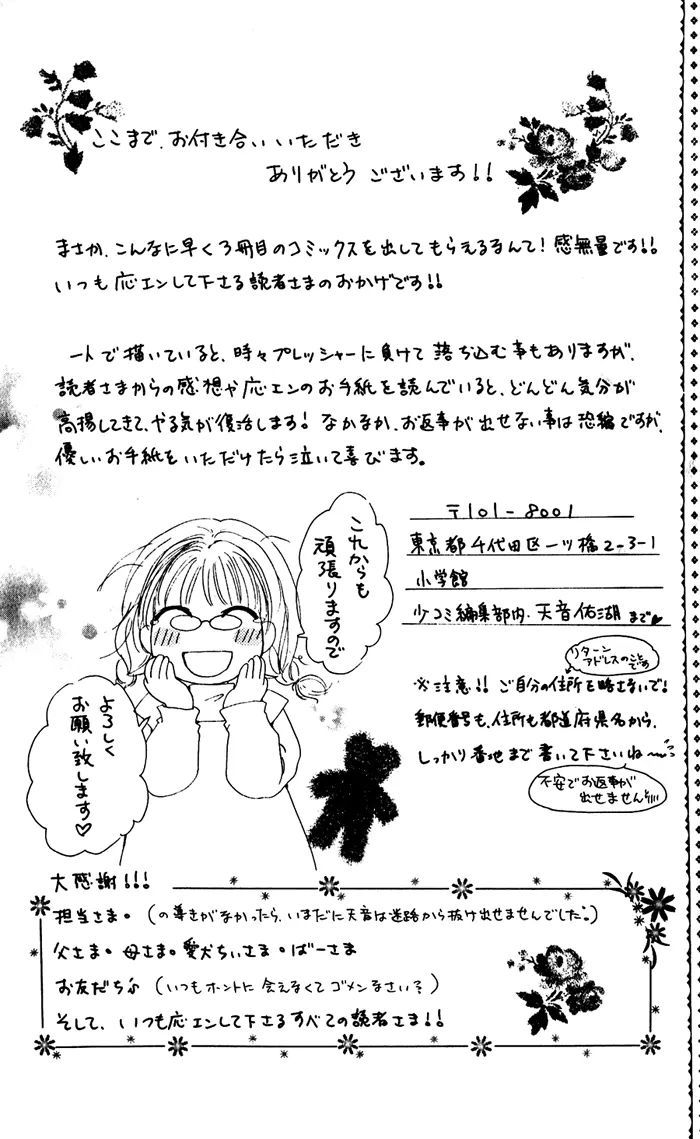 ここまで、お付き合いいただき
ありがとうございます!!
まさか、こんなに早く3冊目のコミックスを出してもらえるなんて!感無量です!!
いつも応エンして下さる読者さまのおかげです!!
一人で描いていると、時々プレッシャーに負けて落ち込む事もありますが、
読者さまからの感想や応エンのお手紙を読んでいると、どんどん気分が
高揚してきて、やる気が復活します!なかなか、お返事が出せない事は恐縮ですが、
優しいお手紙をいただけたら泣いて喜びます。
これからも
頑張りますので
よろしく
お願い致します♡
〒101-8001
東京都千代田区一ツ橋2-3-1
小学館
少コミ編集部内・天音佑湖まで♥
リターン
アドレスのこと
です
※注意!!ご自分の住所を略さないで!
郵便番号も、住所も都道府県名から、
しっかり番地まで書いて下さいね〜
不安でお返事が
出せません
大感謝!!!
担当さま。(の導きがなかったら、いまだに天音は迷路から抜け出せませんでした。)
父さま。母さま。愛犬ちいさま。ばーさま
お友だち♪(いつもホントに会えなくてゴメンなさい?)
そして、いつも応エンして下さるすべての読者さま!!